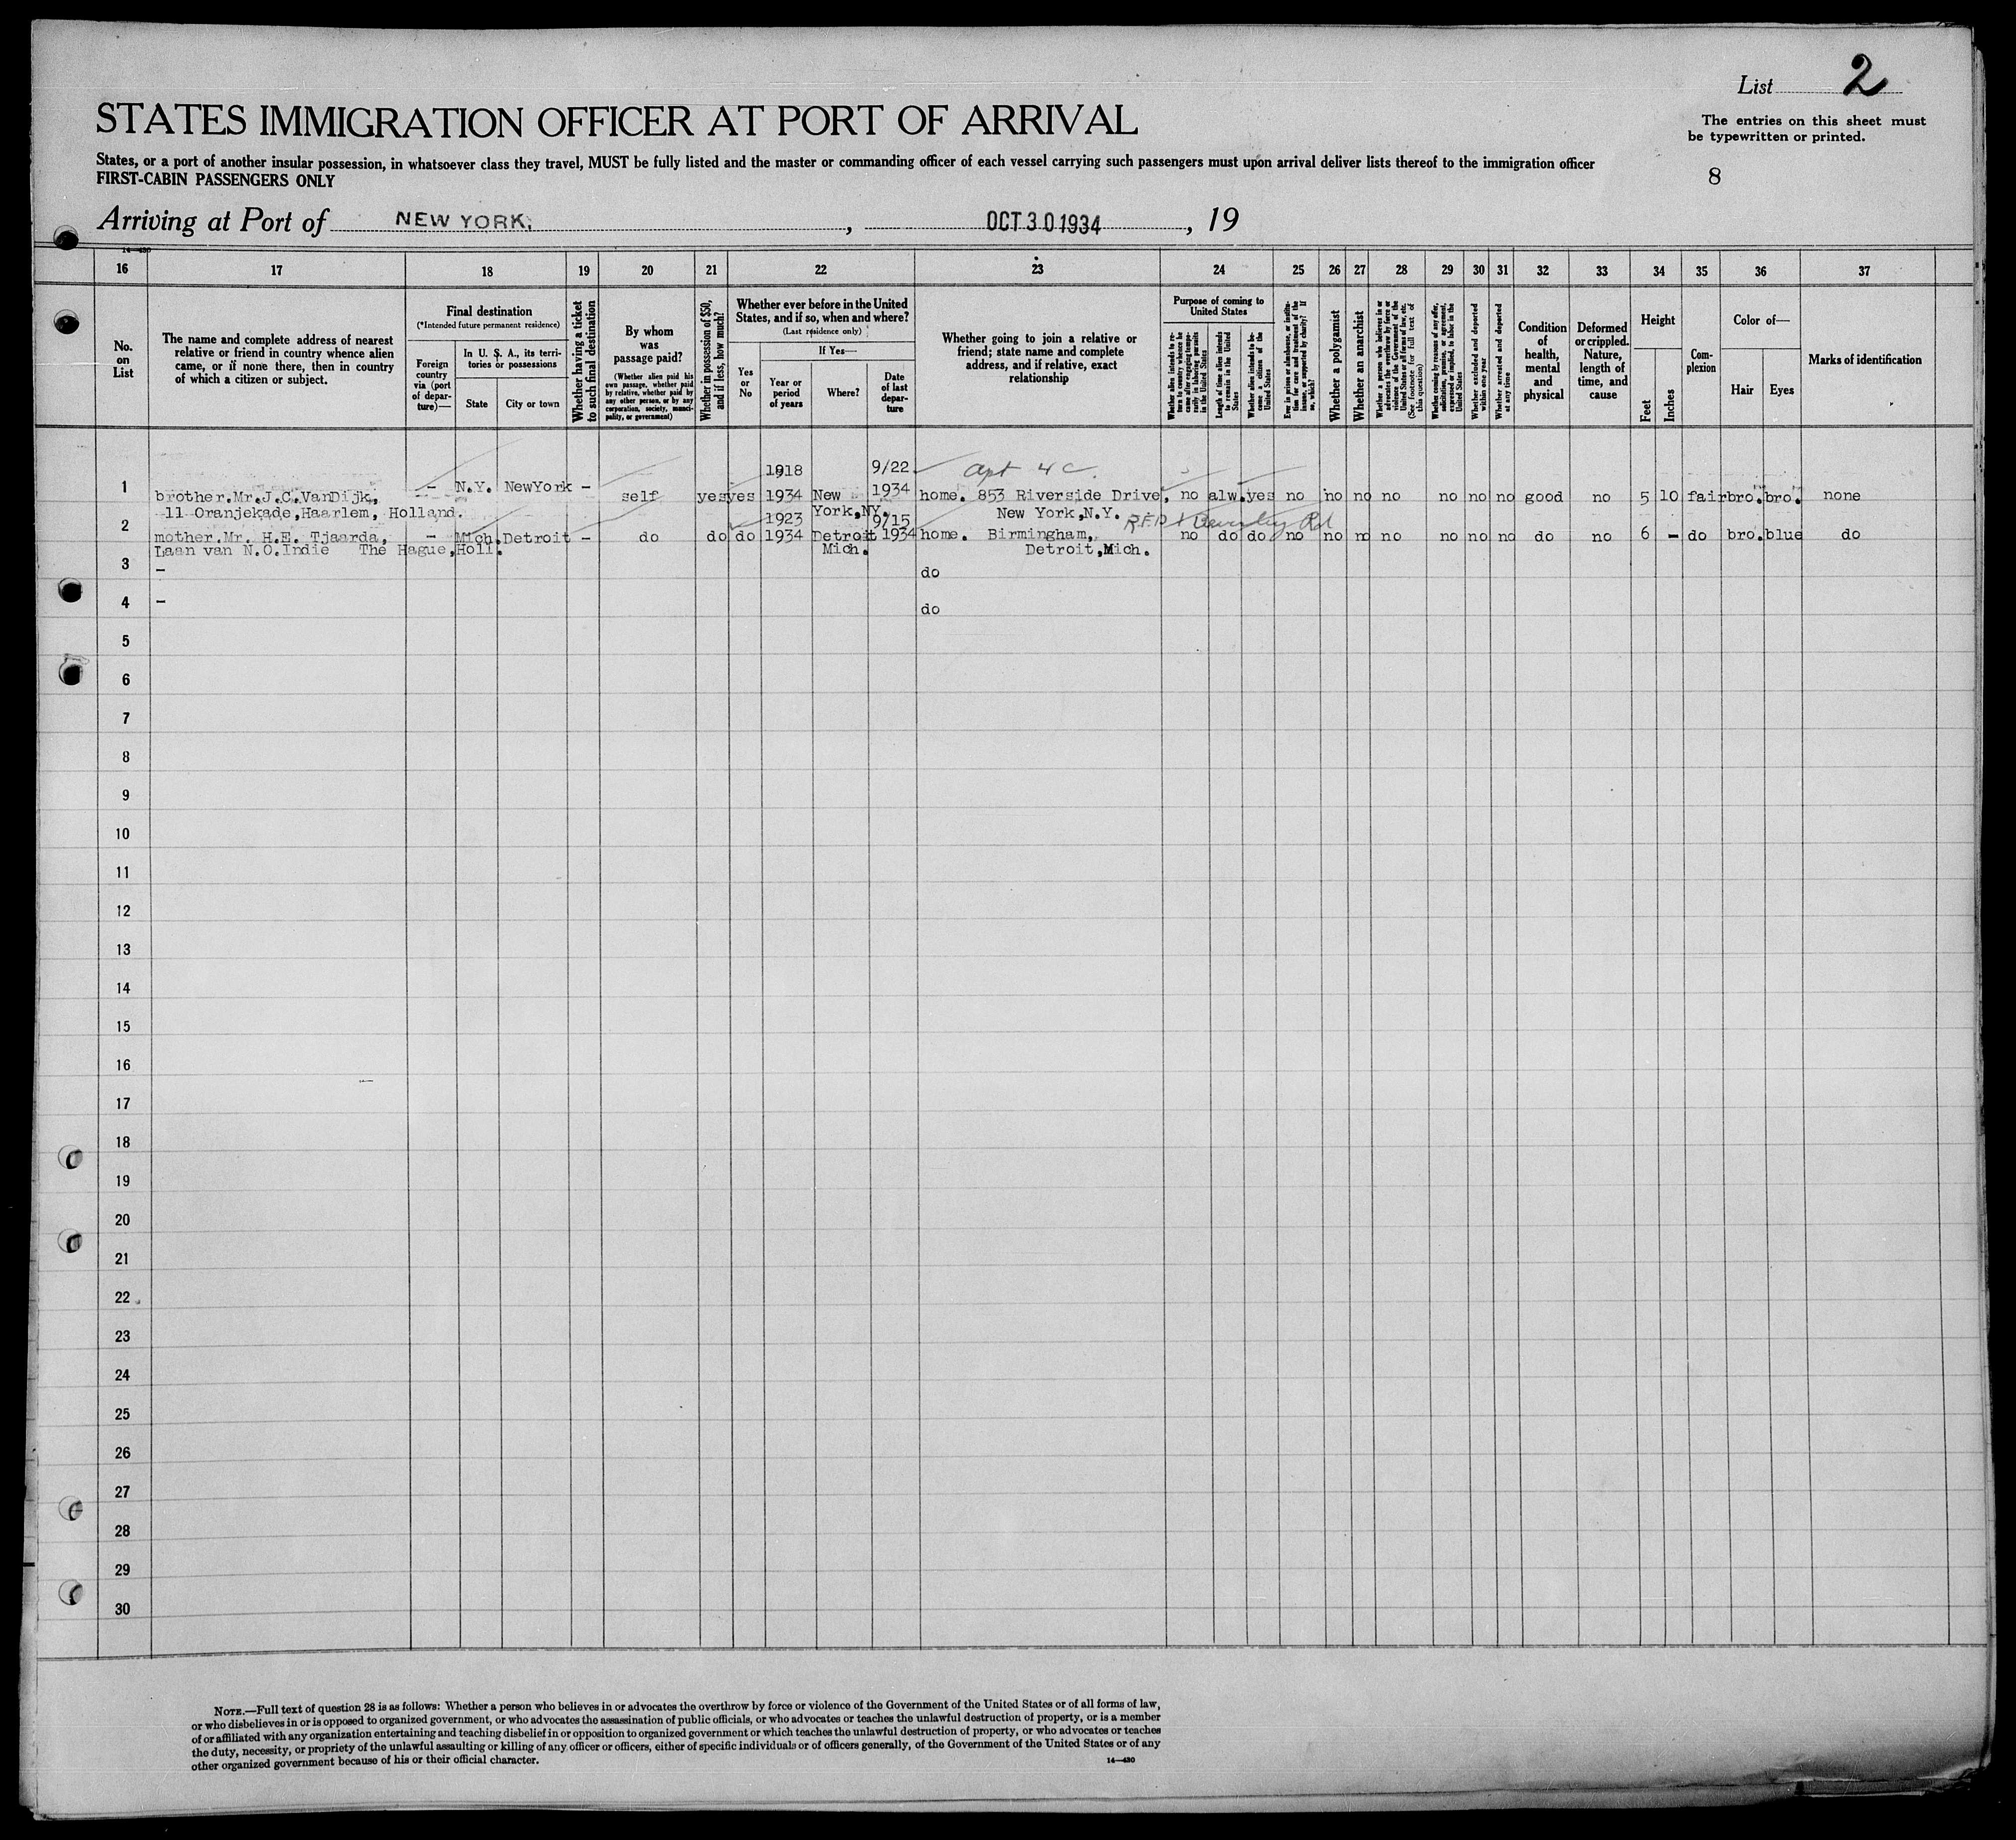 List 2
STATES IMMIGRATION OFFICER AT PORT OF ARRIVAL
The entries on this sheet must
be typewritten or printed.
States, or a port of another insular possession, in whatsoever class they travel, MUST be fully listed and the master or commanding officer of each vessel carrying such passengers must upon arrival deliver lists thereof to the immigration officer
FIRST-CABIN PASSENGERS ONLY
8
Arriving at Port of NEW YORK, , OCT 30 1934 , 19
14—480
16 17 18 19 20 21 22 23 24 25 26 27 28 29 30 31 32 33 34 35 36 37
No.
on
List
The name and complete address of nearest
relative or friend in country whence alien
came, or if none there, then in country
of which a citizen or subject.
Final destination
(*Intended future permanent residence)
Foreign
country
via (port
of depar-
ture)—
In U. S. A., its terri-
tories or possessions
State
City or town
Whether having a ticket
to such final destination
By whom
was
passage paid?
(Whether alien paid his
own passage, whether paid
by relative, whether paid by
any other person, or by any
corporation, society, munici-
pality, or government)
Whether in possession of $50,
and if less, how much?
Whether ever before in the United
States, and if so, when and where?
(Last residence only)
Yes
or
No
If Yes—
Year or
period
of years
Where?
Date
of last
depar-
ture
Whether going to join a relative or
friend; state name and complete
address, and if relative, exact
relationship
Purpose of coming to
United States
Whether alien intends to re-
turn to country whence he
came after engaging tempo-
rarily in laboring pursuits
in the United States
Length of time alien intends
to remain in the United
States
Whether alien intends to be-
come a citizen of the
United States
Ever in prison or almshouse, or institu-
tion for care and treatment of the
insane, or supported by charity? If
so, which?
Whether a polygamist
Whether an anarchist
Whether a person who believes in or
advocates the overthrow by force or
violence of the Government of the
United States or all forms of law, etc.
(See footnote for full text of
this question)
Whether coming by reasons of any offer,
solicitation, promise, or agreement,
expressed or implied, to labor in the
United States
Whether excluded and deported
within one year
Whether arrested and deported
at any time
Condition
of
health,
mental
and
physical
Deformed
or crippled.
Nature,
length of
time, and
cause
Height
Feet
Inches
Com-
plexion
Color of—
Hair
Eyes
Marks of identification
1918 9/22 Apt 4C.
1 – N.Y. NewYork –
brother.Mr.J.C.VanDijk, self yes yes 1934 New 1934 home. 853 Riverside Drive, no alw. yes no no no no no no no good no 5 10 fair bro. bro. none
11 Oranjekade,Haarlem, Holland. York,NY. New York,N.Y.
2 1923 9/15 R.F.D. 1 Rd
mother.Mr. H.E. Tjaarda, – Mich. Detroit – do do do 1934 Detroit 1934 home. Birmingham, no do do no no n no no no no do no 6 – do bro. blue do
Laan van N.O.Indie The Hague,Holl. Mich. Detroit,Mich.
3 – do
4 – do
5
6
7
8
9
10
11
12
13
14
15
16
17
18
19
20
21
22
23
24
25
26
27
28
29
30
NOTE.—Full text of question 28 is as follows: Whether a person who believes in or advocates the overthrow by force or violence of the Government of the United States or of all forms of law,
or who disbelieves in or is opposed to organized government, or who advocates the assassination of public officials, or who advocates or teaches the unlawful destruction of property, or is a member
of or affiliated with any organization entertaining and teaching disbelief in or opposition to organized government or which teaches the unlawful destruction of property, or who advocates or teaches
the duty, necessity, or propriety of the unlawful assaulting or killing of any officer or officers, either of specific individuals or of officers generally, of the Government of the United States or of any
other organized government because of his or their official character.
14—480